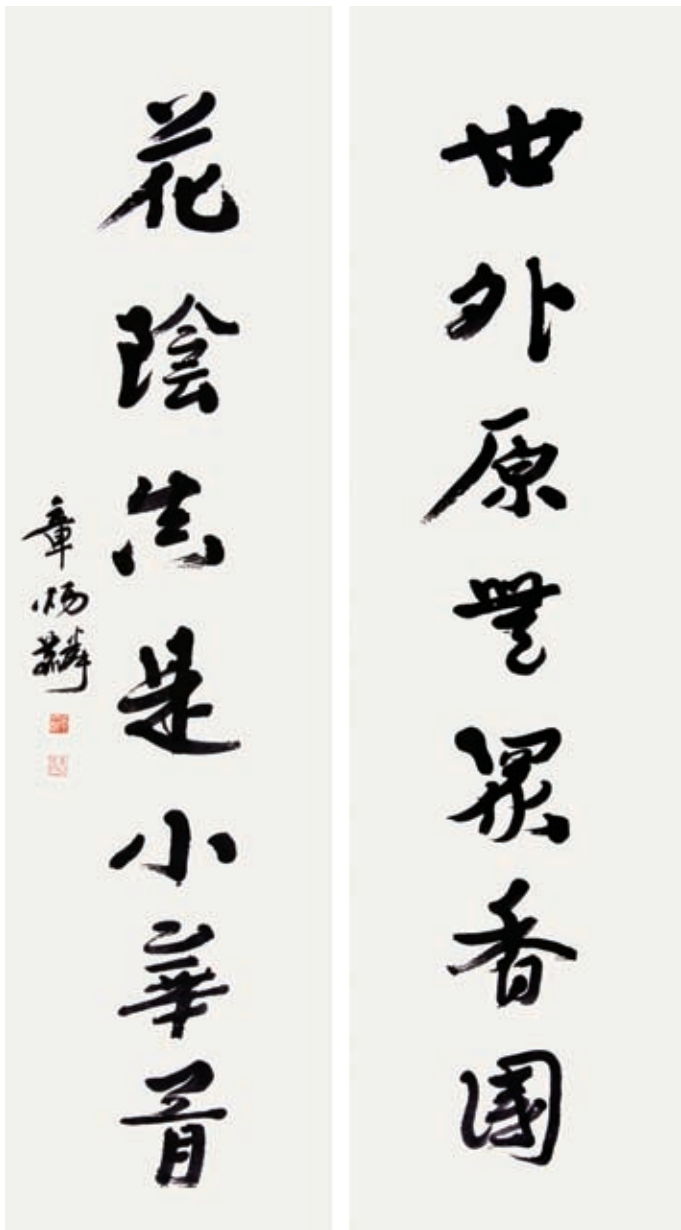 世外原無眾香國
花陰真是小華胥
章炳麟